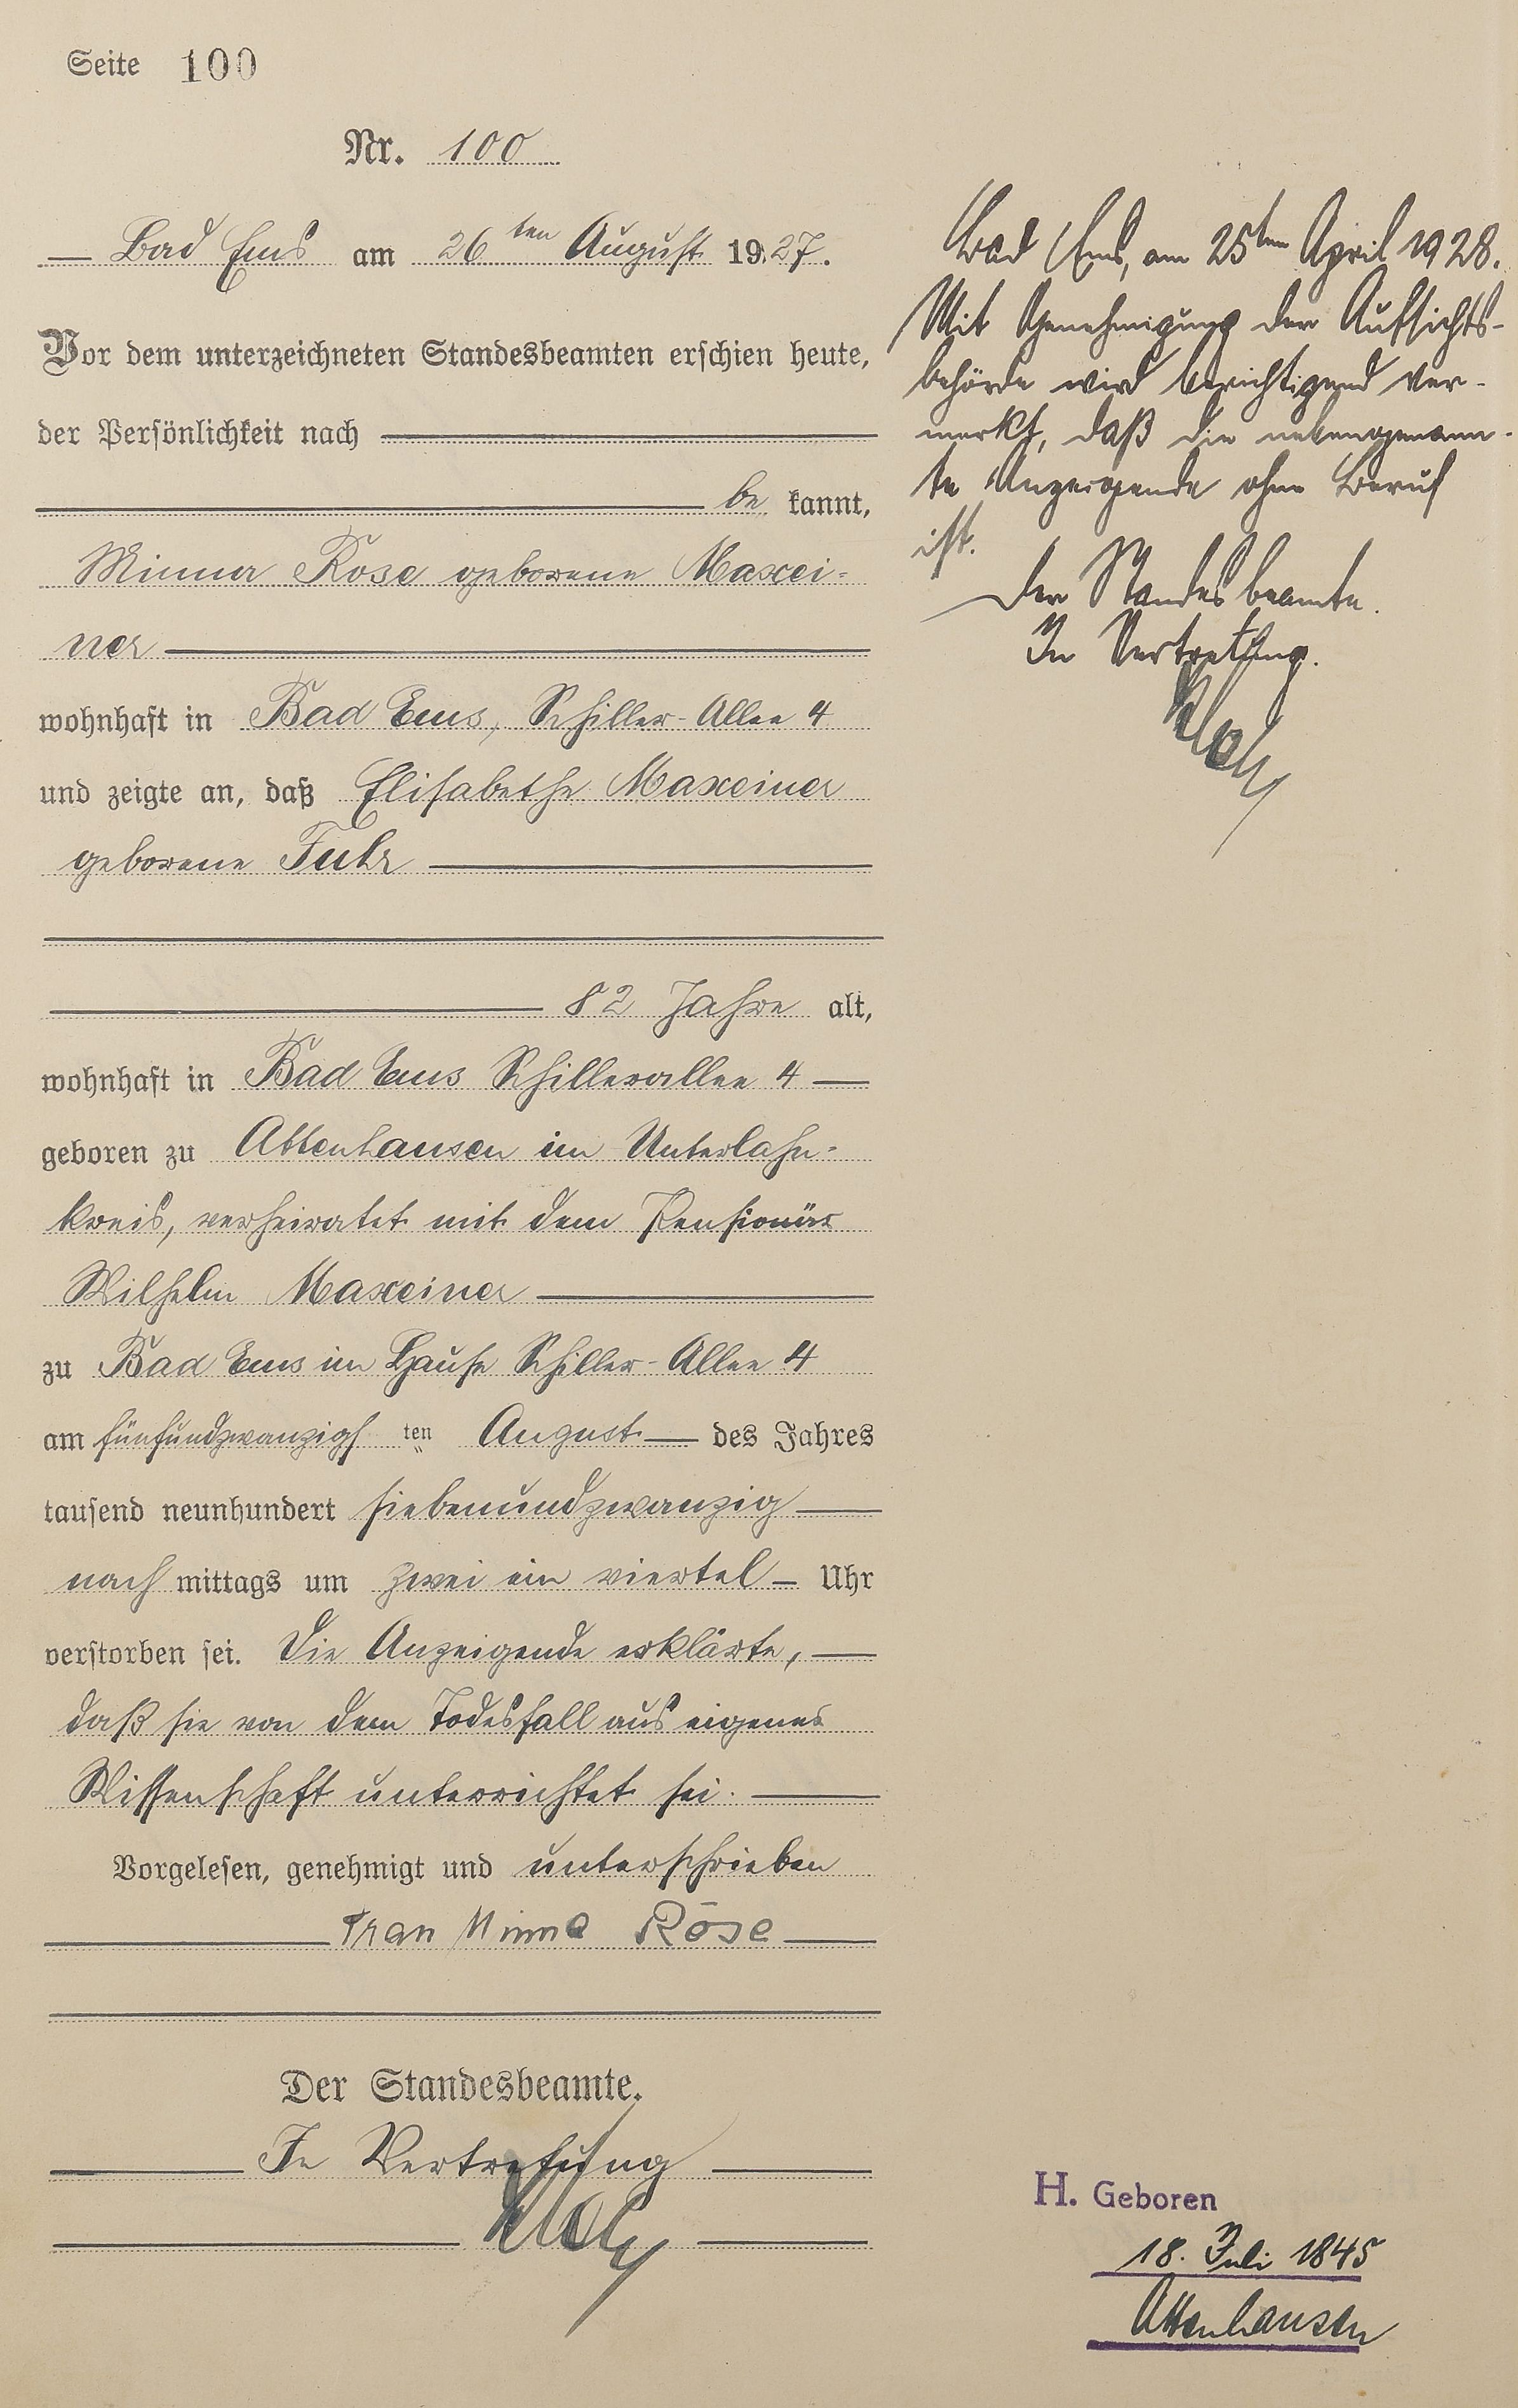 Seite 100
Nr. 100
Bad Ems am 26ten August 1927.
Vor dem unterzeichneten Standesbeamten erschien heute,
der Persönlichkeit nach
be kannt,
Minna Röse geborene Maxei-
ner
wohnhaft in Bad Ems, Schiller-Allee 4
und zeigte an, daß Elisabethe Maxeiner
geborene Fuhr
82 Jahre alt,
wohnhaft in Bad Ems Schillerallee 4
geboren zu Attenhausen im Unterlahn-
kreis, verheiratet mit dem Pensionär
Wilhelm Maxeiner
zu Bad Ems im Hause Schiller-Allee 4
am fünfundzwanzigsten August des Jahres
tausend neunhundert siebenundzwanzig
nach mittags um zwei ein viertel Uhr
verstorben sei. Die Anzeigende erklärte,
daß sie von dem Todesfall aus eigener
Wissenschaft unterrichtet sei.
Vorgelesen, genehmigt und unterschrieben
Frau Minna Röse
Der Standesbeamte.
In Vertretung
Bad Ems, am 25ten April 1928.
Mit Genehmigung der Aufsichts-
behörde wird berichtigend ver-
merkt, daß die nebengenann-
te Anzeigende ohne Beruf
ist.
Der Standesbeamte.
In Vertretung.
H. Geboren
18. Juli 1845
Attenhausen